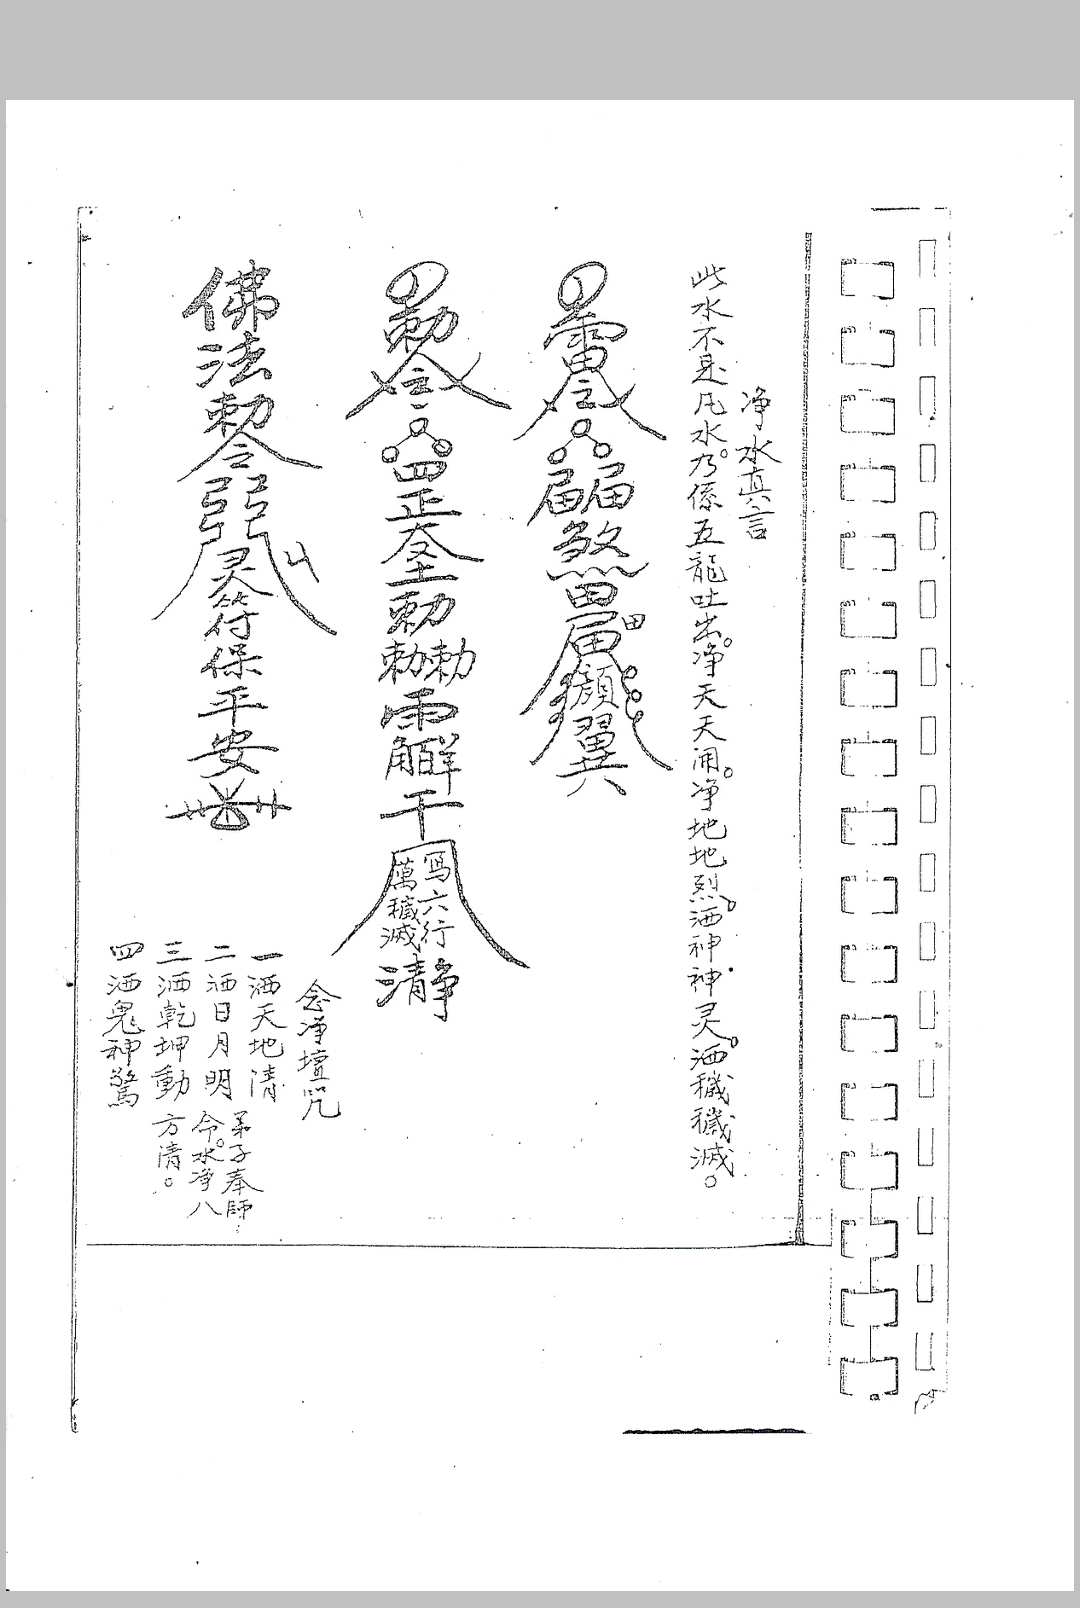 净水真言
此水不是凡水。乃係五龍吐出。净天天開。净地地烈。洒神神灵。洒穢穢滅。
雷令
煞
翼
勅令
罡
勅
勅勅
雷
寫六行
萬穢滅
清静
佛法勅令
灵符保平安
念净壇咒
一洒天地清
二洒日月明
三洒乾坤動
四洒鬼神驚
弟子奉師
令。水净八
方清。